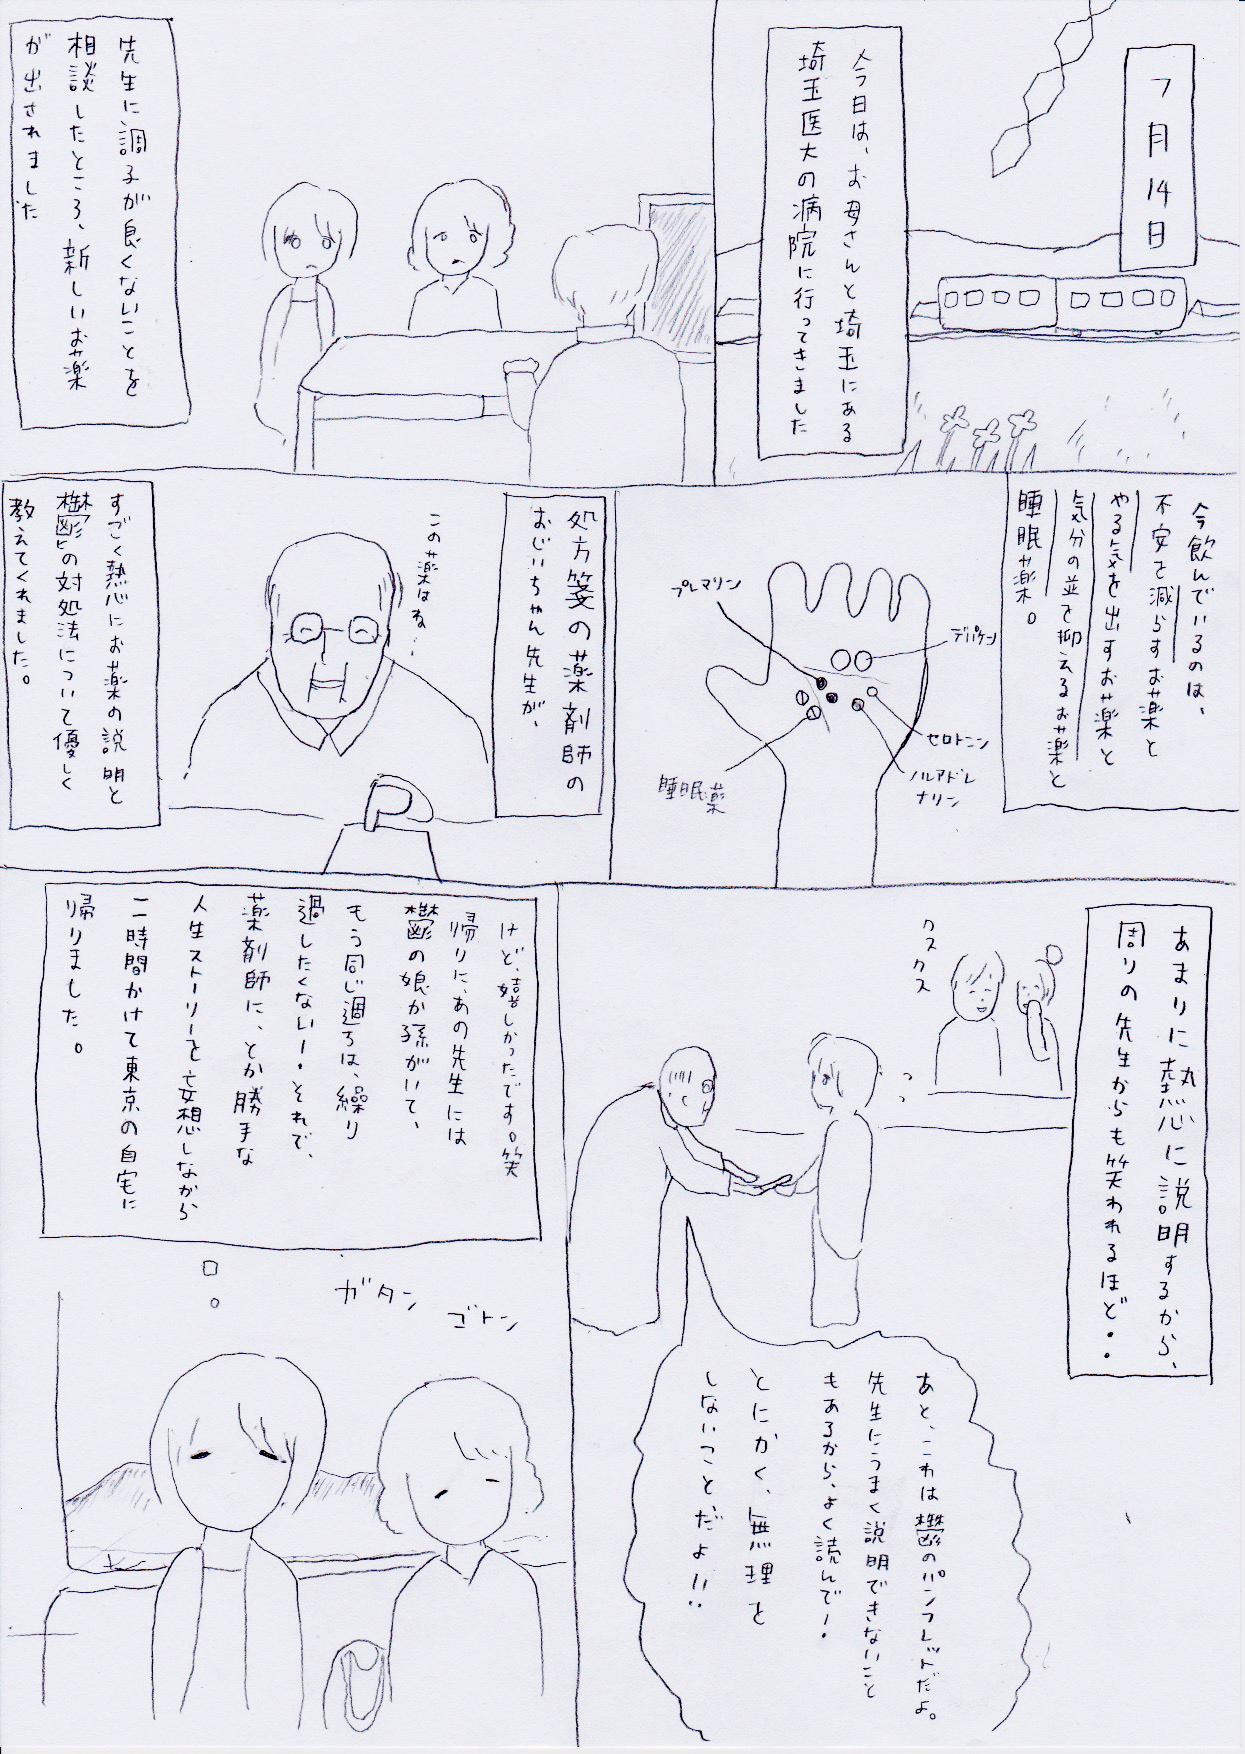 7月14日
今日は、お母さんと埼玉にある
埼玉医大の病院に行ってきました
先生に調子が良くないことを
相談したところ、新しいお薬
が出されました
今飲んでいるのは、
不安を減らすお薬と
やる気を出すお薬と
気分の並を抑えるお薬と
睡眠薬。
デパケン
プレマリン
セロトニン
ノルアドレ
ナリン
睡眠薬
処方箋の薬剤師の
おじいちゃん先生が、
この薬はね…
すごく熱心にお薬の説明と
鬱の対処法について優しく
教えてくれました。
あまりに熱心に説明するから、
周りの先生からも笑われるほど・・
クスクス
あと、これは鬱のパンフレットだよ。
先生にうまく説明できないこと
もあるから、よく読んで！
とにかく、無理を
しないことだよ!!
けど、嬉しかったです。笑
帰りに、あの先生には
鬱の娘か孫がいて、
もう同じ過ちは、繰り
過したくない！それで、
薬剤師に、とか勝手な
人生ストーリーを妄想しながら
二時間かけて東京の自宅に
帰りました。
ガタン
ゴトン